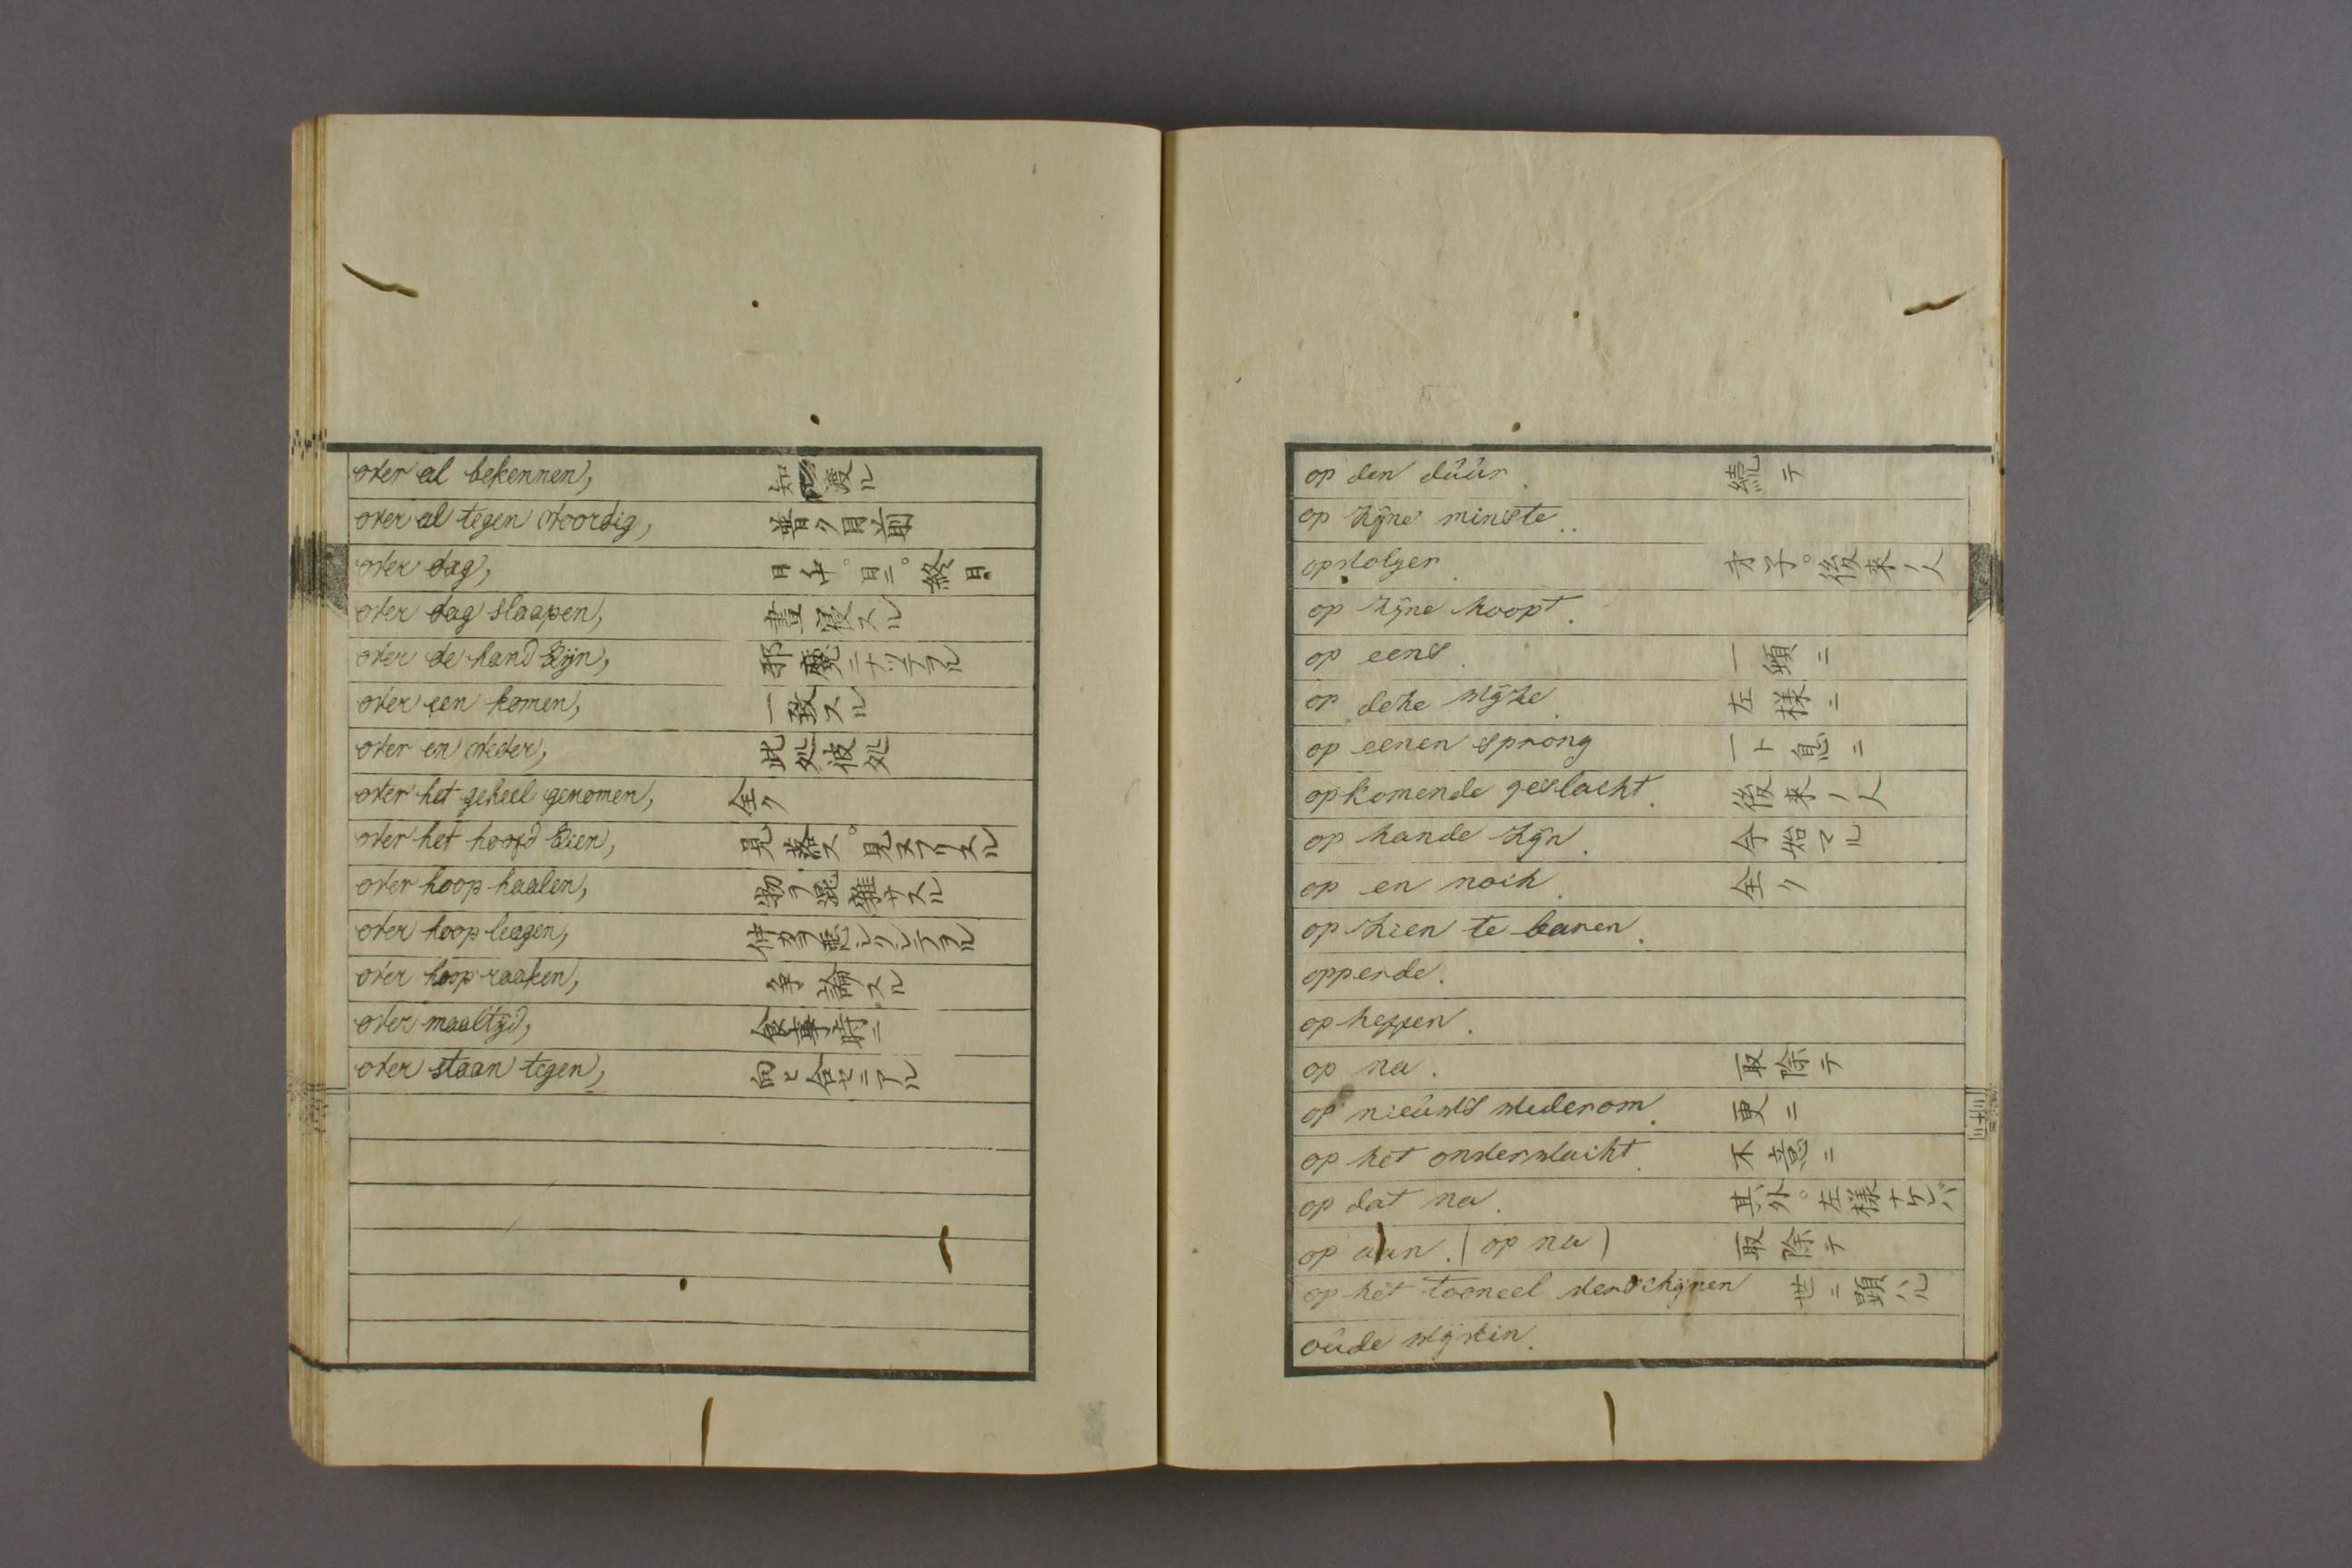 over al bekennen, 知渡ル
over al tegen woordig, 普ク目前
over dag, 日中。日ニ。終日
over dag slaapen, 晝寝スル
over de hand zijn, 邪魔ニナツテヲル
over een komen, 一致スル
over en weder, 此処彼処
over het geheel genomen, 全ク
over het hoofd zien, 見落ス。見ヌフリスル
over hoop haalen, 物ヲ混雜サスル
over hoop leggen,
over hoop raaken, 争論スル
over maaltijd, 食事時ニ
over staan tegen, 向ヒ合セニアル
op den dûûr. 続テ
op zijne minste..
opvolger. 才子。後来ノ人
op zijne hoopt.
op eens. 一頓ニ
op deze wijze. 左様ニ
op eenen sprong 一ト息ニ
opkomende geslacht. 後来ノ人
op hande zijn. 今始マル
op en noch. 全ク
op zien te baren.
opperde.
op heffen.
op na. 取除テ
op nieûws wederom. 更ニ
op het onverwacht. 不意ニ
op dat na. 其外。左様ナケレバ
op aan. (op na) 取除テ
op het tooneel verschijnen 世ニ顕ハル
oûde wijven.